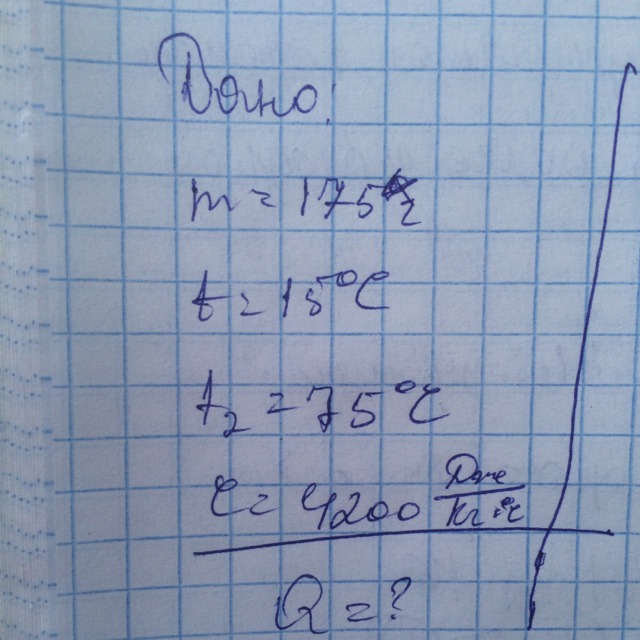 Дано:
m = 175 г
t = 15°C
t₂ = 75°C
c = 4200 Дж/кг·°C
Q = ?